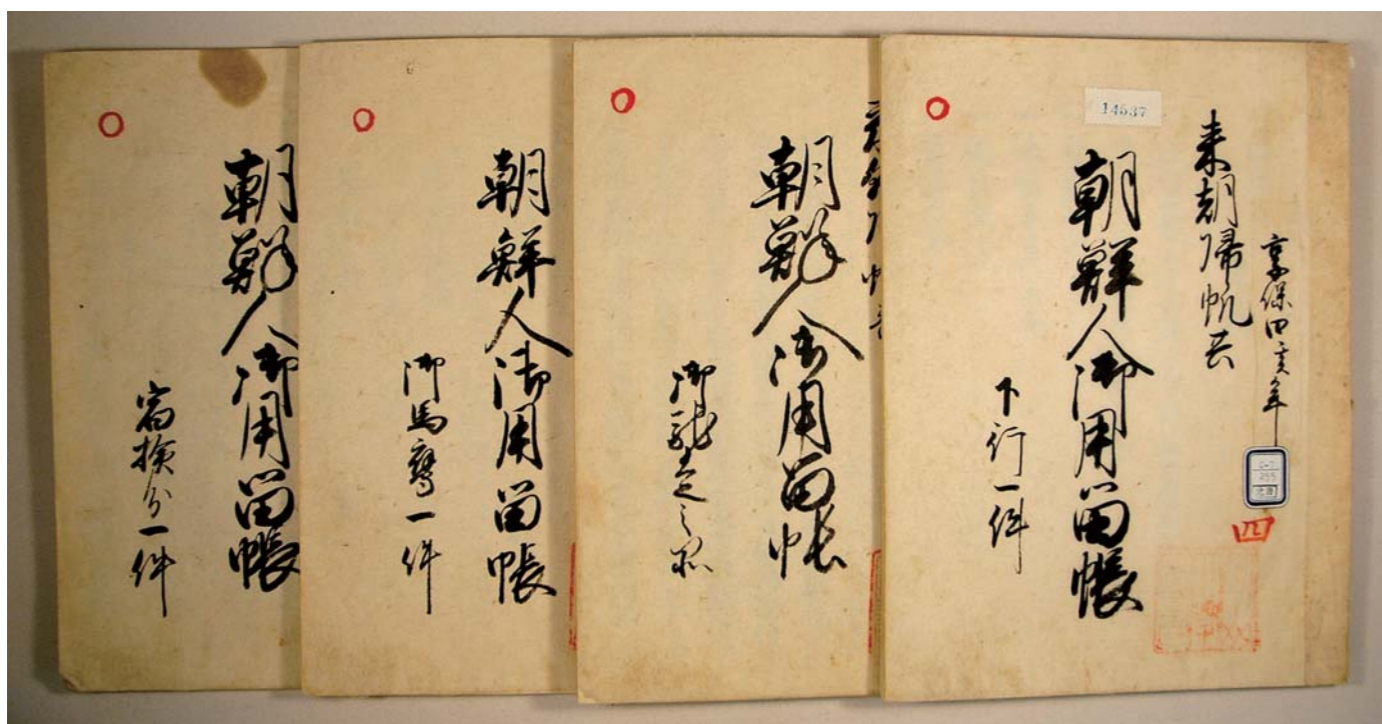 享保四亥年
来朝帰帆共
14537
朝鮮人御用留帳
下行一件
四
朝鮮人御用留帳
御馳走之部
朝鮮人御用留帳
御馬鷹一件
朝鮮人御用留帳
宿検分一件